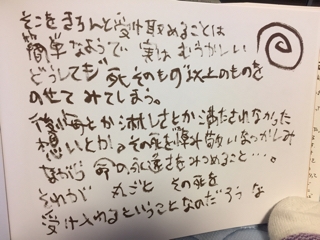 そこをきちんと受け取めることは
簡単なようで 実は むつかしい
どうしても 死 そのもの 以上のものを
のせて みてしまう。
後悔とか 淋しさとか 満たされなかった
想いとか。その死を いつくしみ
ながら 命の永遠さをみつめること…。
それが 丸ごと その死を
受け入れるということなのだろうな